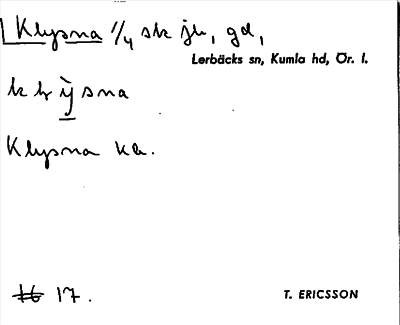 Klysna 1/4 sk jb, gd,
Lerbäcks sn, Kumla hd, Ör. l.
Klysna
17.
T. ERICSSON